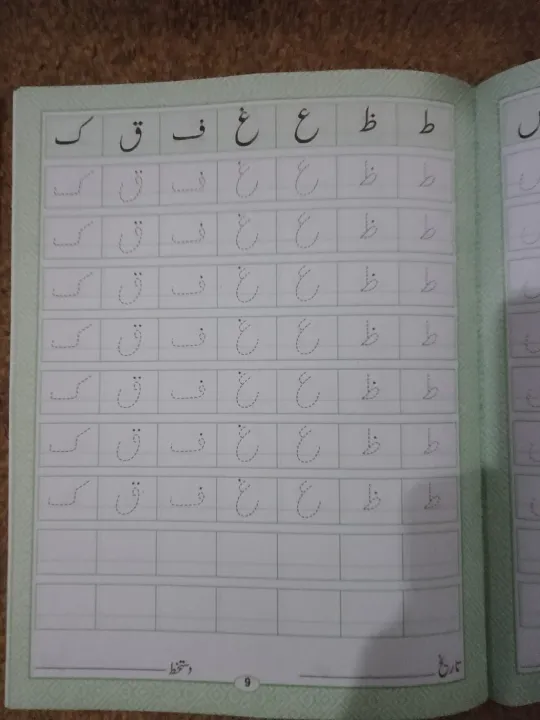 ط ظ ع غ ف ق ک
ط ظ ع غ ف ق ک
ط ظ ع غ ف ق ک
ط ظ ع غ ف ق ک
ط ظ ع غ ف ق ک
ط ظ ع غ ف ق ک
ط ظ ع غ ف ق ک
ط ظ ع غ ف ق ک
تاریخ دستخط
9